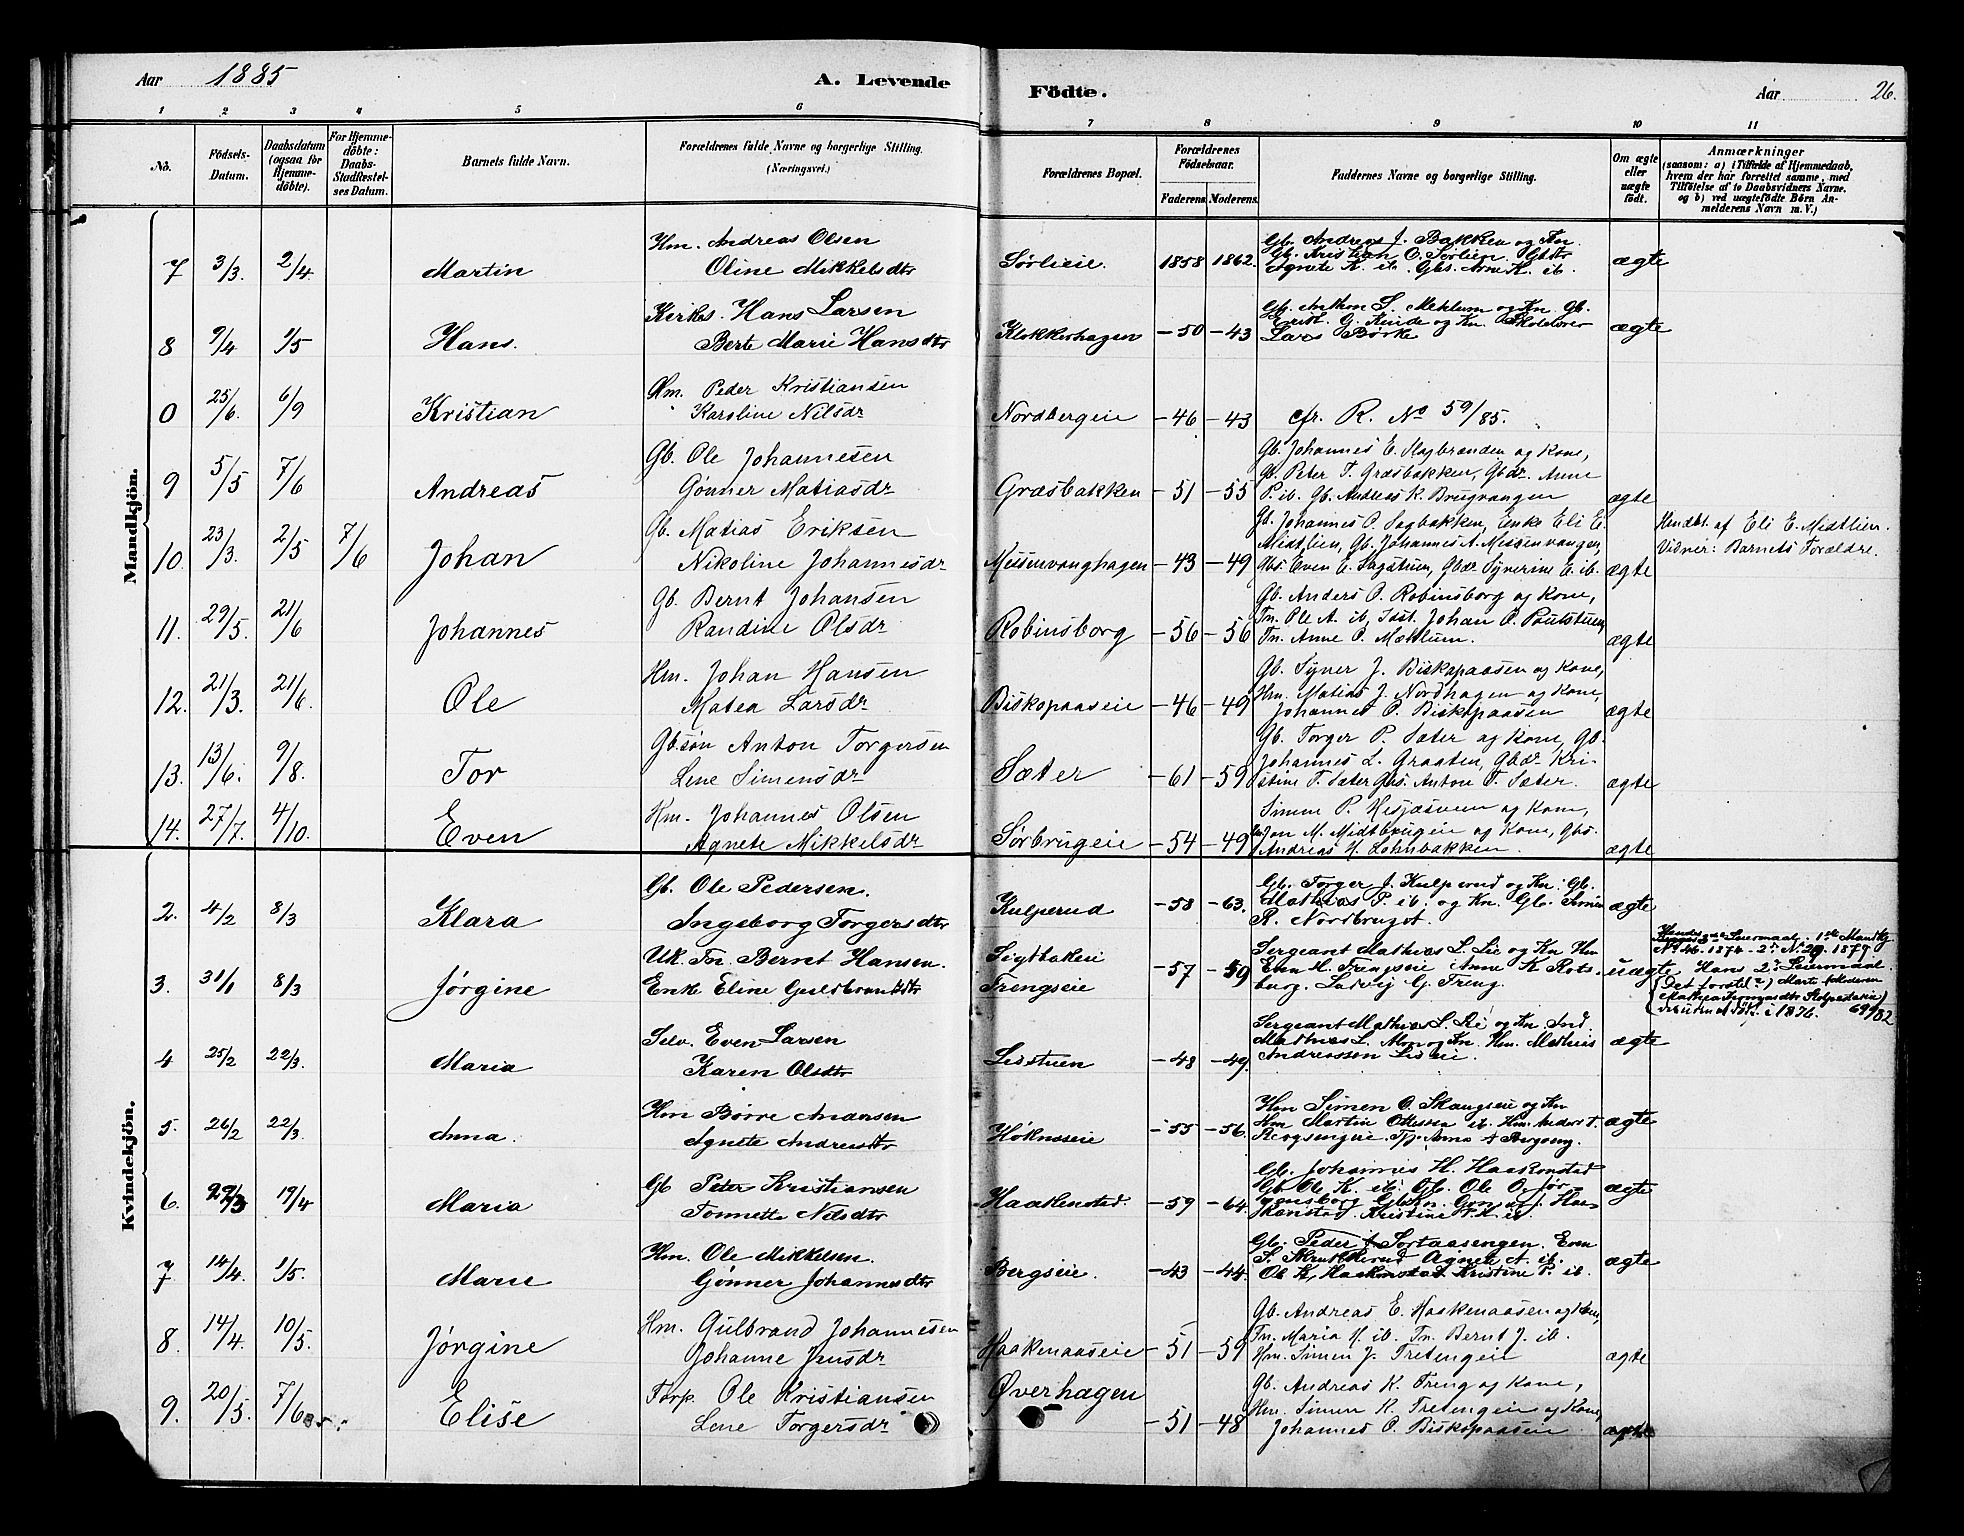 Aar 1885
A. Levende Fødte.
Aar 26.
1 2 3 4 5 6 7 8 9 10 11
No.
Fødsels-Datum.
Daabsdatum (ogsaa for Hjemme-døbte).
For Hjemme-døbte: Daabs-Stadfæstel-ses Datum.
Barnets fulde Navn.
Forældrenes fulde Navne og borgerlige Stilling. (Næringsvei.)
Forældrenes Bopæl.
Forældrenes Fødselsaar.
Faderens. Moderens.
Faddernes Navne og borgerlige Stilling.
Om ægte eller uægte født.
Anmærkninger
(saasom: a) i Tilfælde af Hjemmedaab,
hvem der har forrettet samme, med
Tilføielse af to Daabsvidners Navne,
og b) ved uægtefødte Børn An-
melderens Navn m. V.)
Mandkjön.
7 3/3. 2/4 Martin Hm. Andreas Olsen
Oline Mikkelsdtr Sørlieie. 1858 1862. Gb. Andreas J. Bakken og Kn.
Gb. Kristian O. Sørlien. Gbdtr
Agnete K. ib. Gbs. Arne K. ib. ægte
8 9/4 1/5 Hans. Kirkes. Hans Larsen
Berte Marie Hansdtr Klokkerhagen -50 -43 Gb. Anthon S. Mehlum og Kn. Gb.
G. Kinde og Kn. Skolelærer
Lars Børke ægte
0 25/6. 6/9 Kristian Hm. Peder Kristiansen
Karoline Nilsdr Nordbergeie -46 -43 cfr. R. No 59/85.
9 5/5 7/6 Andreas Gb. Ole Johannesen
Gønner Matiasdr Græsbakken -51 -55 Gb. Johannes E. Hagbranden og Kone,
Gb. Peter T. Græsbakken, Gbdr. Anne
P. ib. Gb. Andreas K. Brugvangen ægte
10. 23/3. 2/5 7/6 Johan Gb. Matias Eriksen
Nikoline Johannesdr Musenvanghagen -43 -49 Gb. Johannes O. Sagbakken, Enke Eli E.
Midtlien, Gb. Johannes A. Mesenvangen,
Gbs. Even E. Sagstuen, Gbdr Syverine E. ib. ægte Hmdbt. af Eli E. Midtlien.
Vidner: Barnets Forældre.
11. 29/5. 21/6 Johannes Gb. Bernt Johansen
Randine Olsdr Robinsborg -56 -56 Gb. Anders O. Robinsborg og Kone,
Tn. Ole A. ib, Inst. Johan O. Poutstuen,
Tn. Anne O. Mæhlum. ægte
12. 21/3. 21/6. Ole Hm. Johan Hansen
Matea Larsdr Biskopaaseie -46 -49 Gb. Syver J. Biskopaasen og Kone,
Hm. Matias J. Nordhagen og Kone,
Johannes O. Biskopaasen ægte
13. 13/6. 9/8. Tor Gb.søn Anton Torgersen
Lene Simensdr Sæter -61 -59 Gb. Torger P. Sæter og Kone, Gb.
Johannes L. Graaten, Gbdr Kri-
stine T. Sæter Gbs. Anton T. Sæter. ægte
14. 27/7. 4/10. Even Hm. Johannes Olsen
Agnete Mikkelsdr Sørbrugeie -54 -49 Simen P. Hesjasveen og Kone,
Jon M. Midtbrugeie og Kone, Gbs.
Andreas H. Lohnbakken. ægte
Kvindekjön.
2. 4/2 8/3 Klara Gb. Ole Pedersen.
Ingeborg Torgersdtr Kulperud -58 -63. Gb. Torger J. Kulperud og Kn. Gb.
Mathias P. ib. og Kn. Gb. Simen
R. Nordbruget. ægte
3. 31/1 8/3 Jørgine Uk. Tn. Bernt Hansen.
Enke Eline Guldbrandsdtr Sigtbakeie
Trengseie -57 -59 Sergeant Mathias L. Lie og Kn Hm
Even H. Trengseie Anne K Rots-
burg. Lovis G. Treng. uægte Hendes 3die Leiermaal. 1ste Mandkj
1874 - 2. N. 29. 1879.
Hans 2. Leiermaal.
(Det første) Marte
født i 1876. 69/82
4 25/2 22/3. Maria Selv. Even Larsen
Karen Olsdtr Liestuen -48 -49. Sergeant Mathias L. Lie og Kn Ind.
Mathias L. Moen og Kn. Hm. Mathias
Andreassen Lieeie. ægte
5. 26/2 22/3. Anna. Hm Børre Andersen
Agnete Andreasdtr Høknæseie -55 -56. Hm Simen O. Skaugseie og Kn
Hm Martin Ottesen ib. Hm. Anders T.
Bergsengeie. Tj. Anne A Bergseng. ægte
6. 22/3 19/4 Maria Gb Peter Kristiansen
Tonnette Nilsdtr Haakenstad. -59 -64. Gb. Johannes H. Haakenstad
Gb Ole K. ib. Gb. Ole O. Jør-
gensborg J. Haa-
kenstad. Kristine N. K. ib. ægte
7 14/4. 1/5. Marie Hm. Ole Mikkelsen.
Gønner Johannesdtr Bergseie. -43 -44. Gb. Peder J. Sortaasengen. Even
S. Agnete A. ib.
Ole K. Haakenstad Kristine P. ib. ægte
8. 14/4. 10/5. Jørgine Hm. Gulbrand Johannesen
Johanne Jensdr Haakenaaseie -51 -59 Gb. Andreas E. Haakenaasen og Kone,
Tn. Maria H. ib. Tn. Bernt J. ib.
Hm. Simen J. Tretengeie ægte
9. 20/5. 7/6 Elise Torp. Ole Kristiansen
Lene Torgersdr Øverhagen -51 -48 Gb. Andreas K. Treng og Kone,
Hm. Simen K. Tretengeie og Kone,
Johannes O. Biskopaaseie ægte